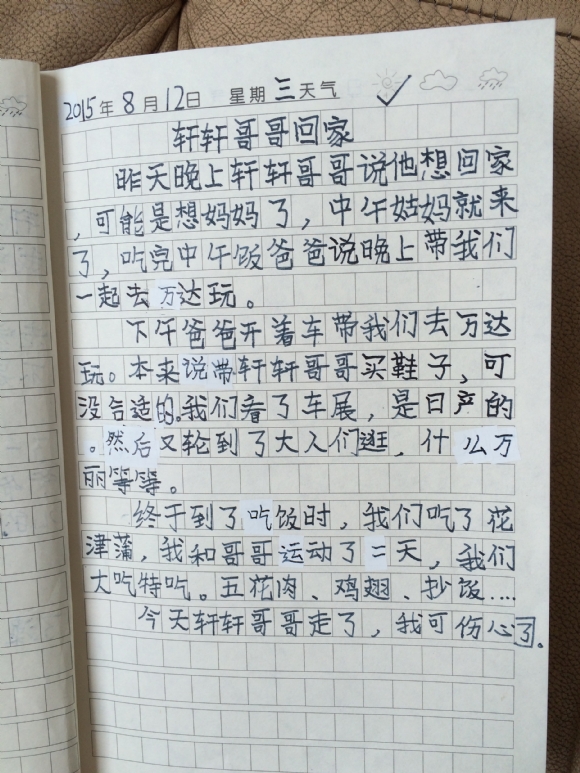 2015年8月12日 星期三天气
轩轩哥哥回家
昨天晚上轩轩哥哥说他想回家
,可能是想妈妈了,中午姑妈就来
了,吃完中午饭爸爸说晚上带我们
一起去万达玩。
下午爸爸开着车带我们去万达
玩。本来说带轩轩哥哥买鞋子,可
没合适的.我们看了车展,是日产的
。然后又轮到了大人们逛,什么万
丽等等。
终于到了吃饭时,我们吃了花
津蒲,我和哥哥运动了二天,我们
大吃特吃。五花肉、鸡翅、抄饭....
今天轩轩哥哥走了,我可伤心了.